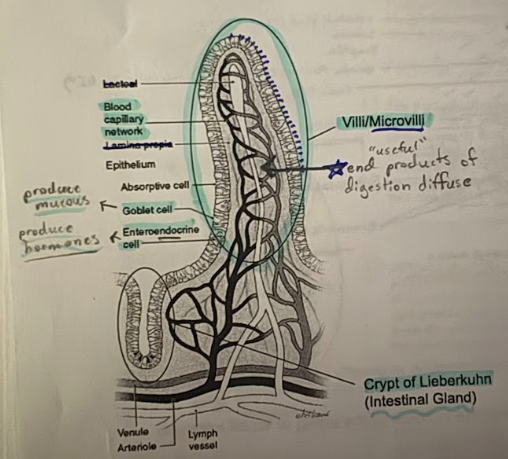 Lacteal
Blood
capillary
network
Lamina propia
Epithelium
Absorptive cell
Goblet cell
Enteroendocrine
cell
produce
mucous
produce
hormones
Villi/Microvilli
"useful"
end products of
digestion diffuse
Crypt of Lieberkuhn
(Intestinal Gland)
Venule
Arteriole
Lymph
vessel